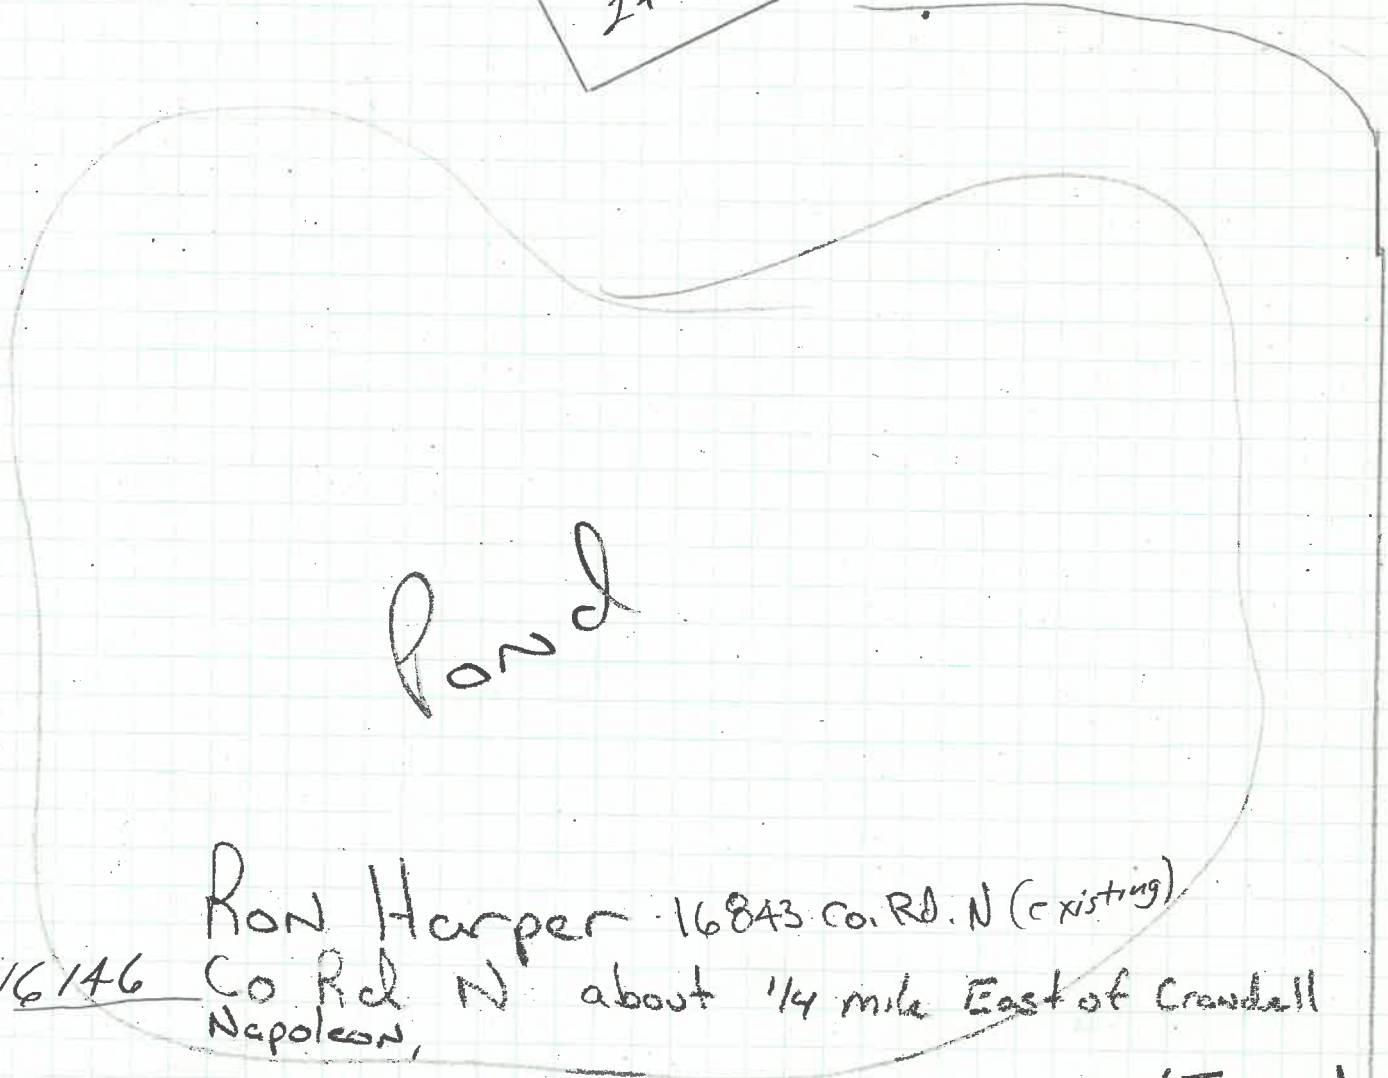 Pond
Ron Harper 16843 Co. Rd. N (existing)
16146 Co Rd N about 1/4 mile East of Crandell
Napoleon,